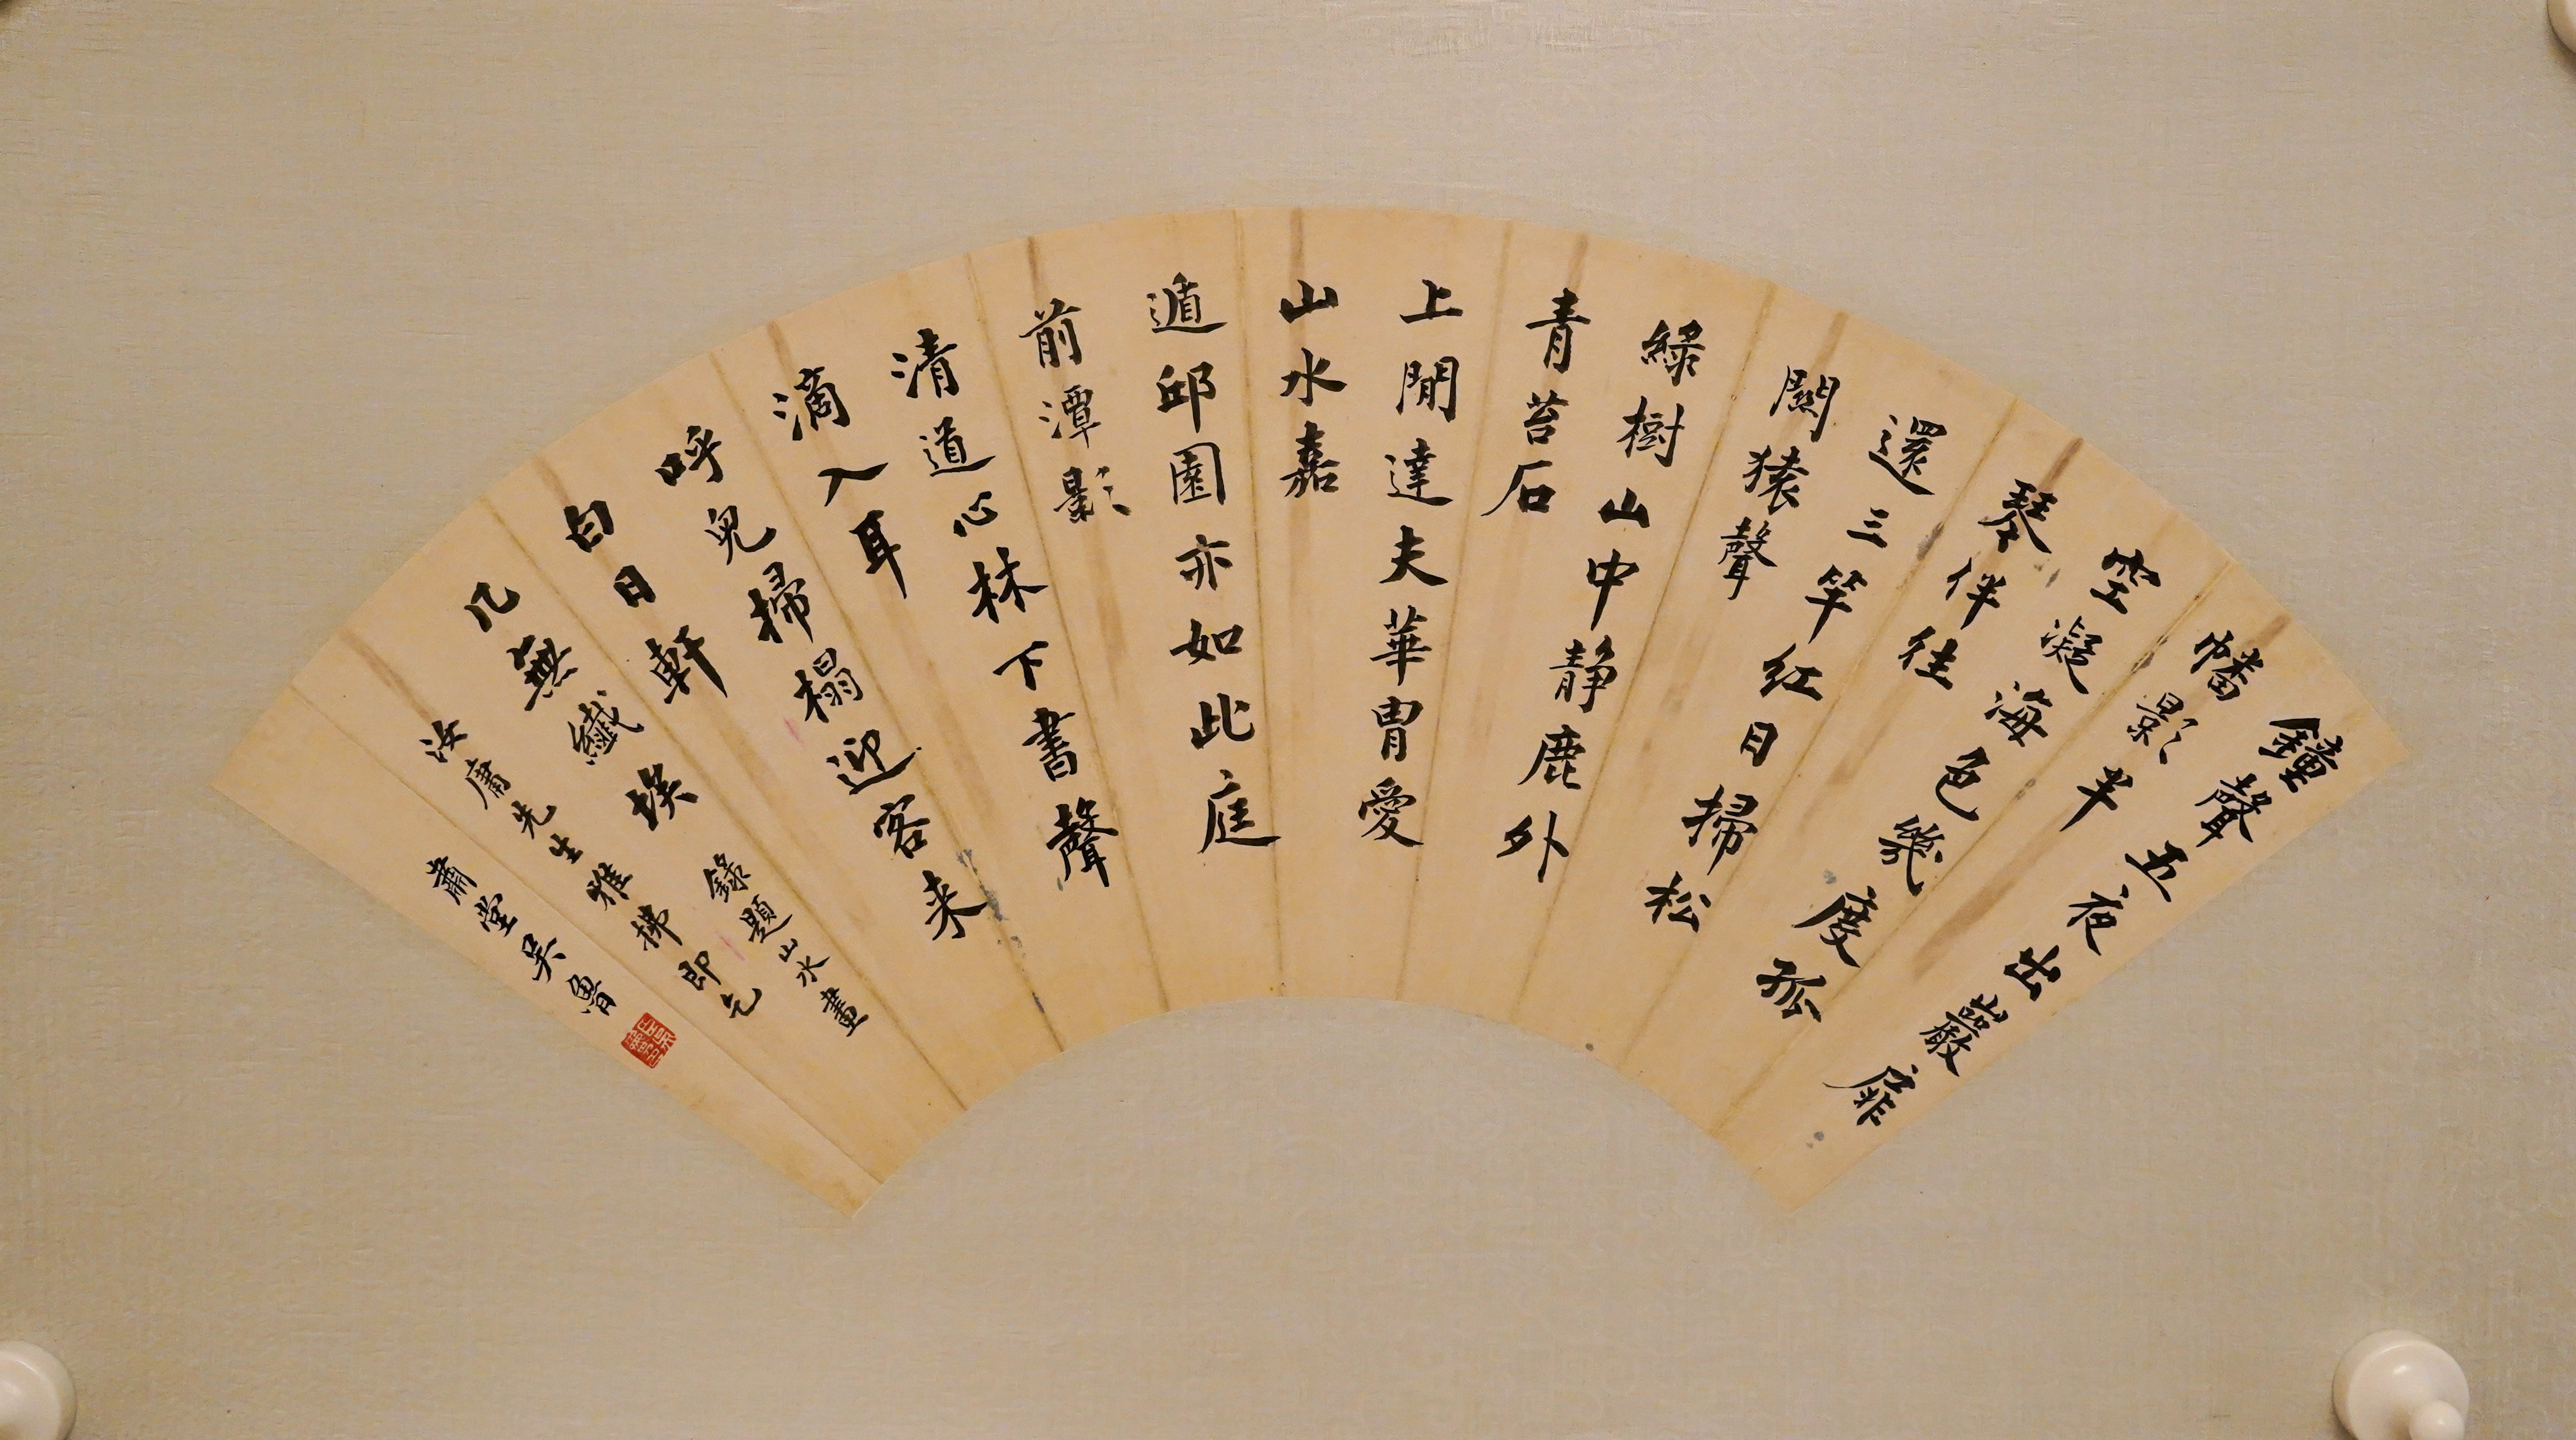 鐘聲五夜出巖扉
幡影半
空凝海色幾度孤
琴伴往
還三竿紅日掃松
關猿聲
綠樹山中静鹿外
青苔石
上閒達夫華胄愛
山水嘉
遁邱園亦如此庭
前潭影
清道心林下書聲
滴入耳
呼兒掃榻迎客来
白日軒
几無纖埃 錄題山水畫
汝庸先生雅拂即乞
肅堂吴魯